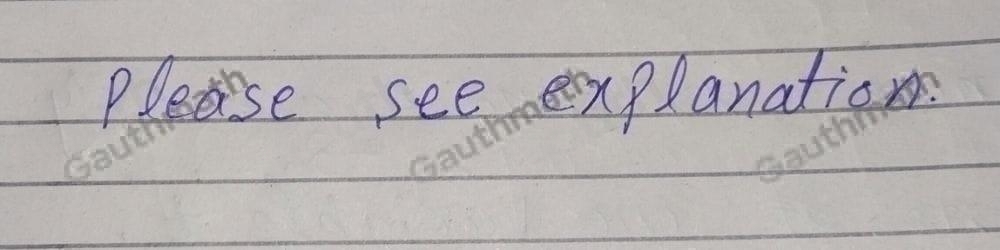 Please see explanation.
Gauthmath Gauthmath Gauthmath